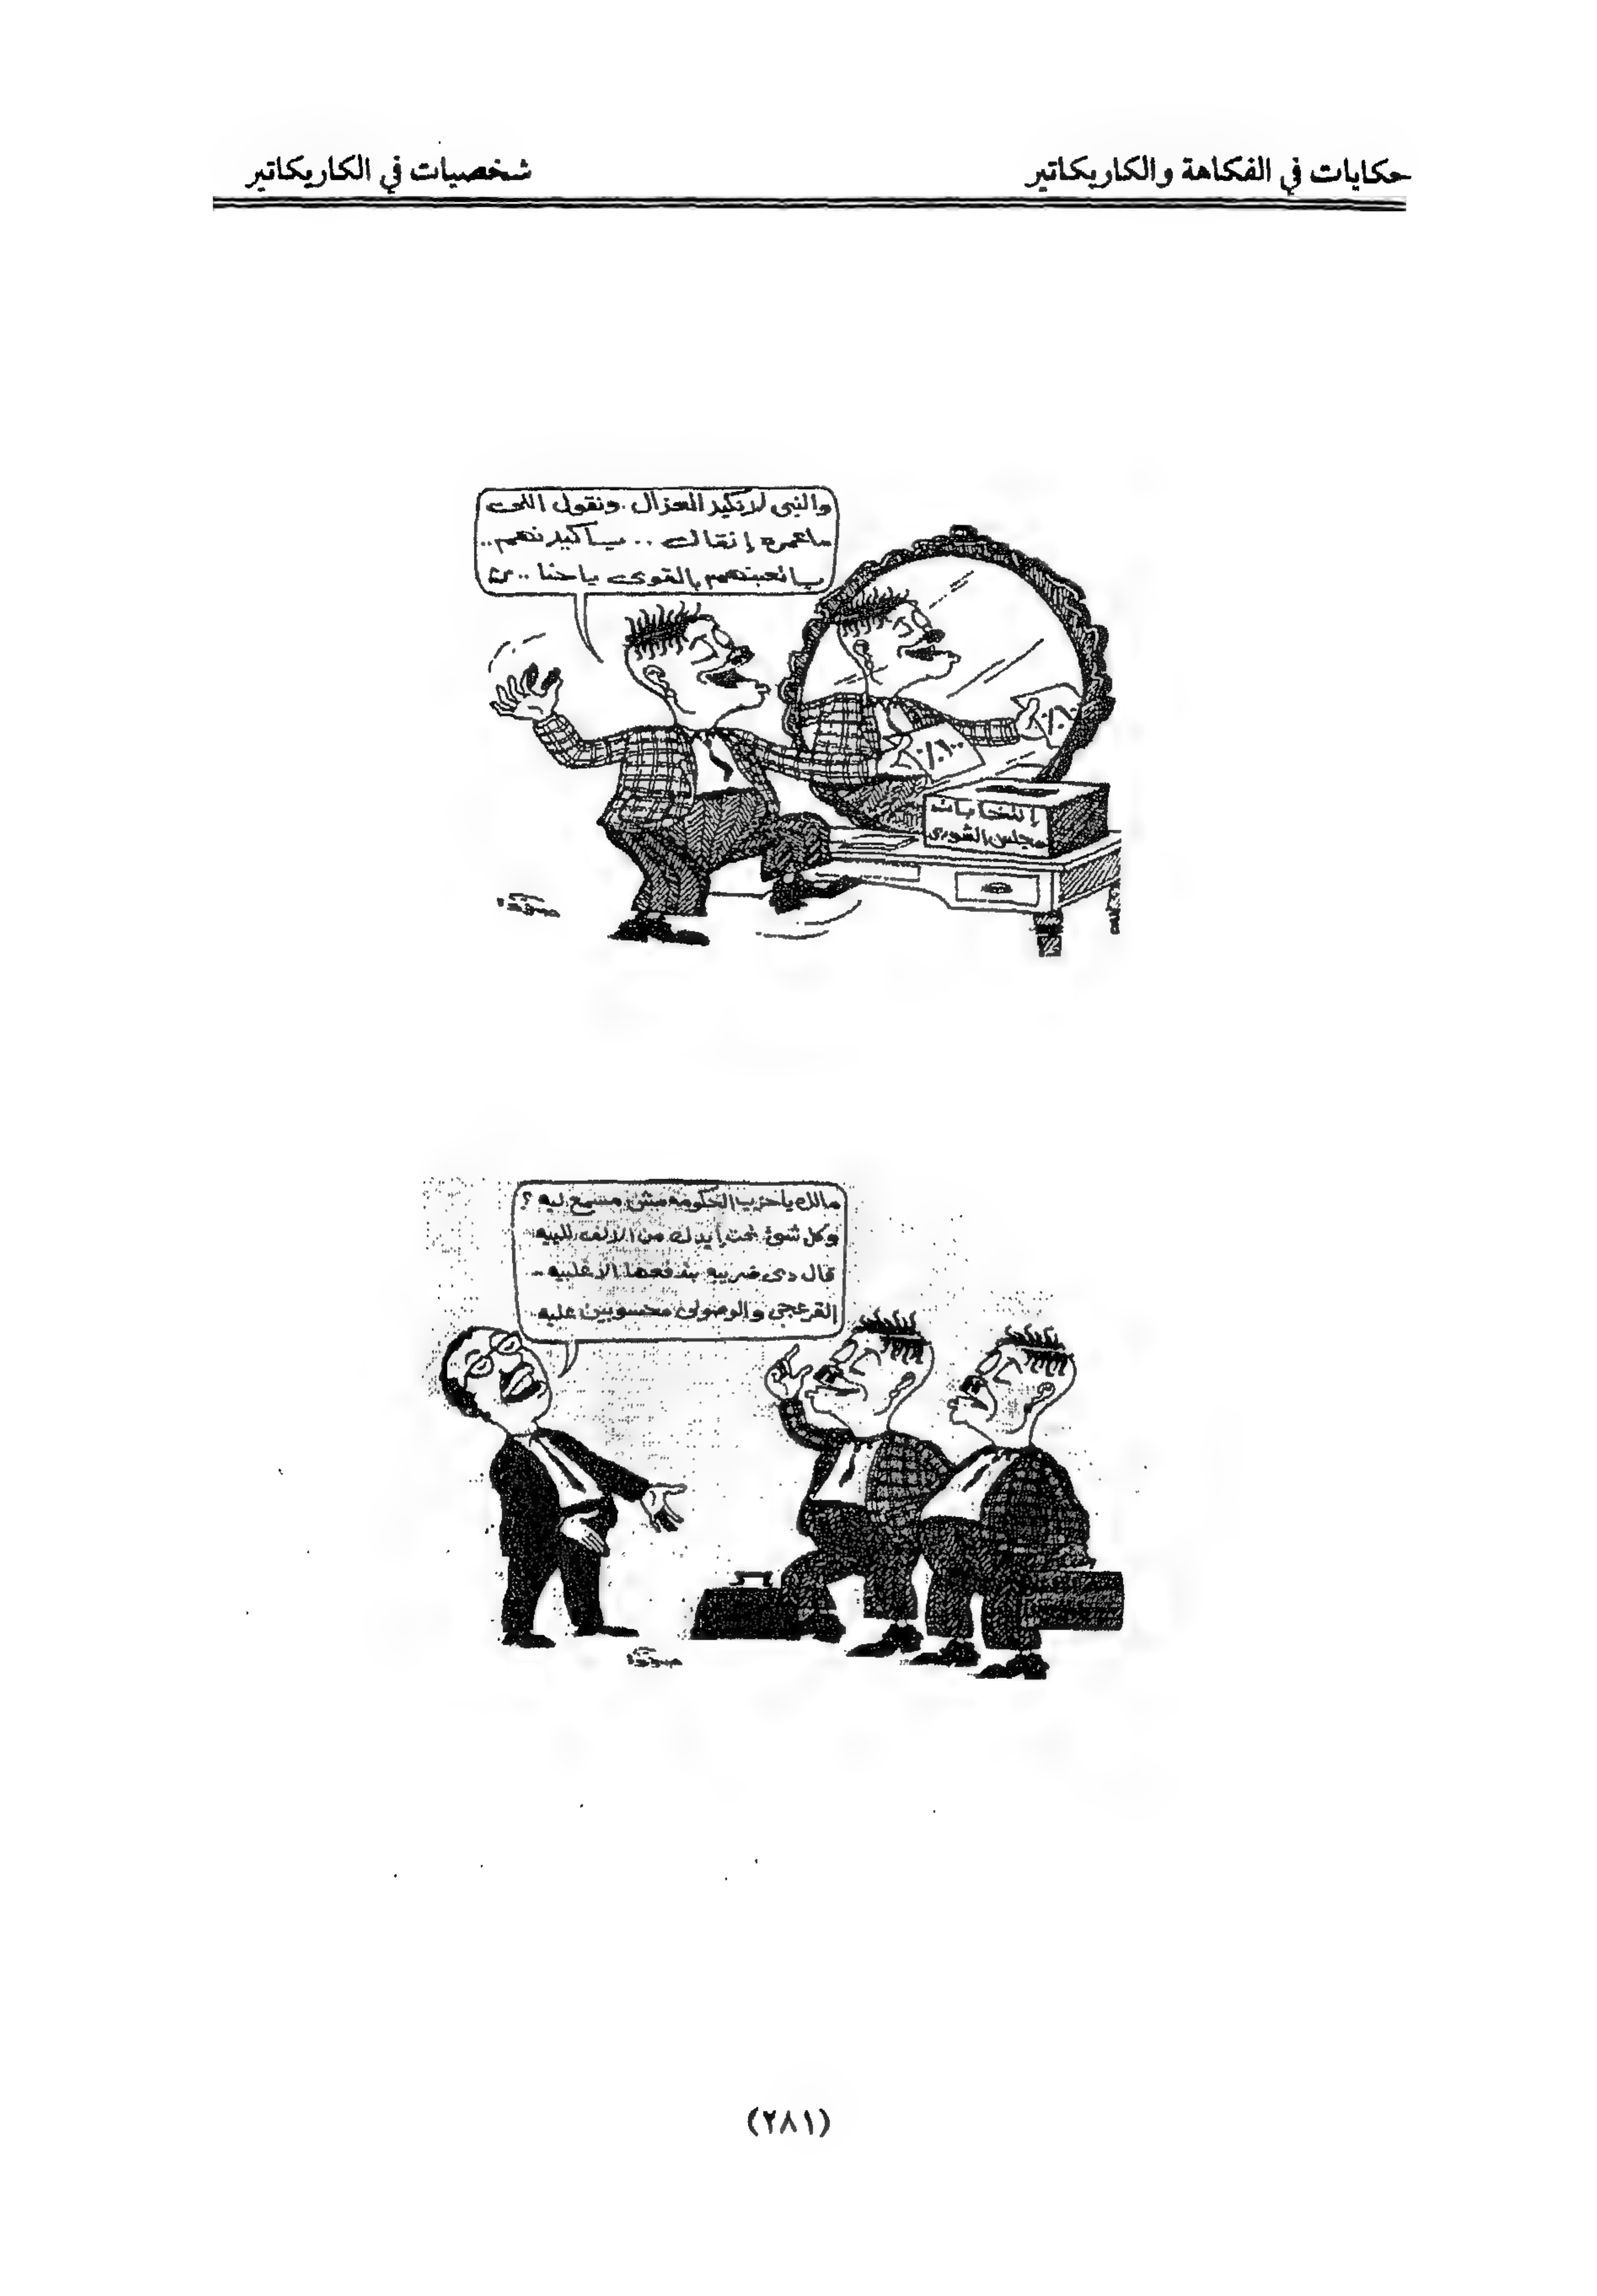 حكايات في الفكاهة والكاريكاتير
شخصيات في الكاريكاتير
والنبى لانكيد العزال .ونقول اللى
ماعمره إنقال .. ياكيدنهم ..
يا تعبنهم بالقوى ياحنا ..
١٠٠٪
إنتخابات
مجلس الشورى
مالك ياحزب الحكومه مش مسمع ليه ؟
وكل شئ تحت إيدك من الألف للييه
قال دى ضريبه بتدفعها الأغلبيه ..
القرعجى والوصولى محسوبين عليه
(٢٨١)